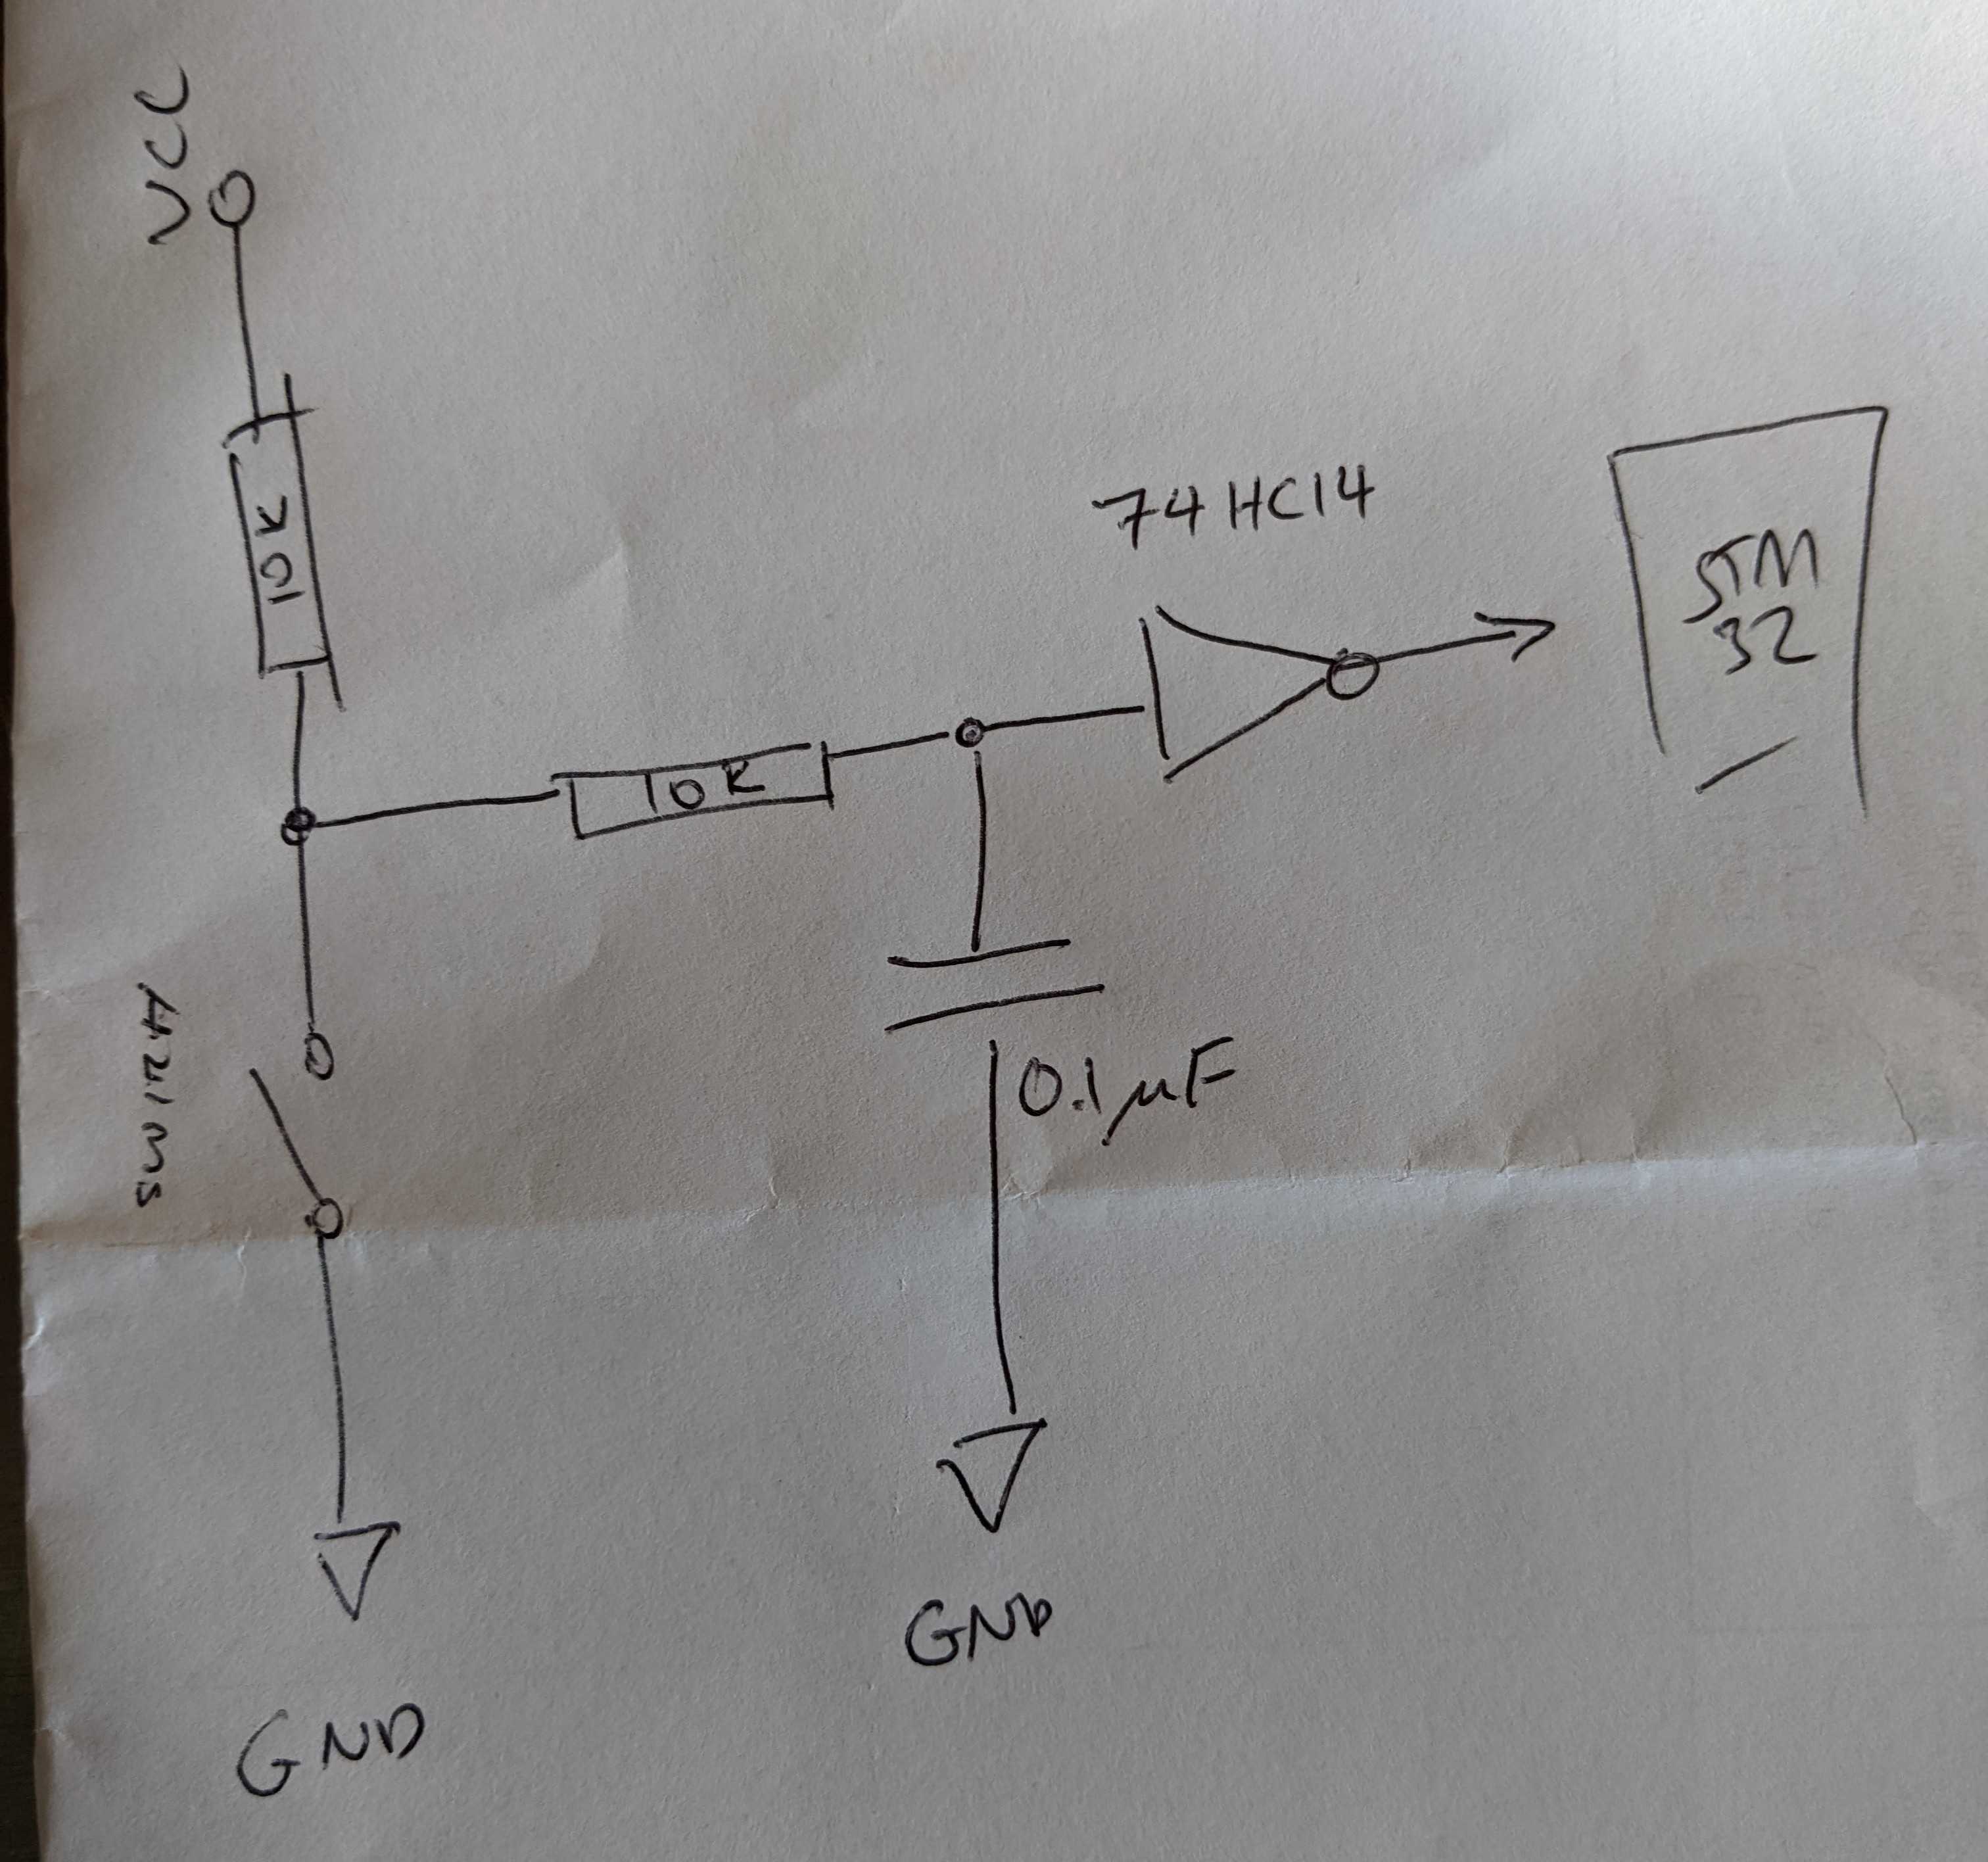 VCC
10K
10K
74HC14
STM
32
SWITCH
0.1µF
GND
GND